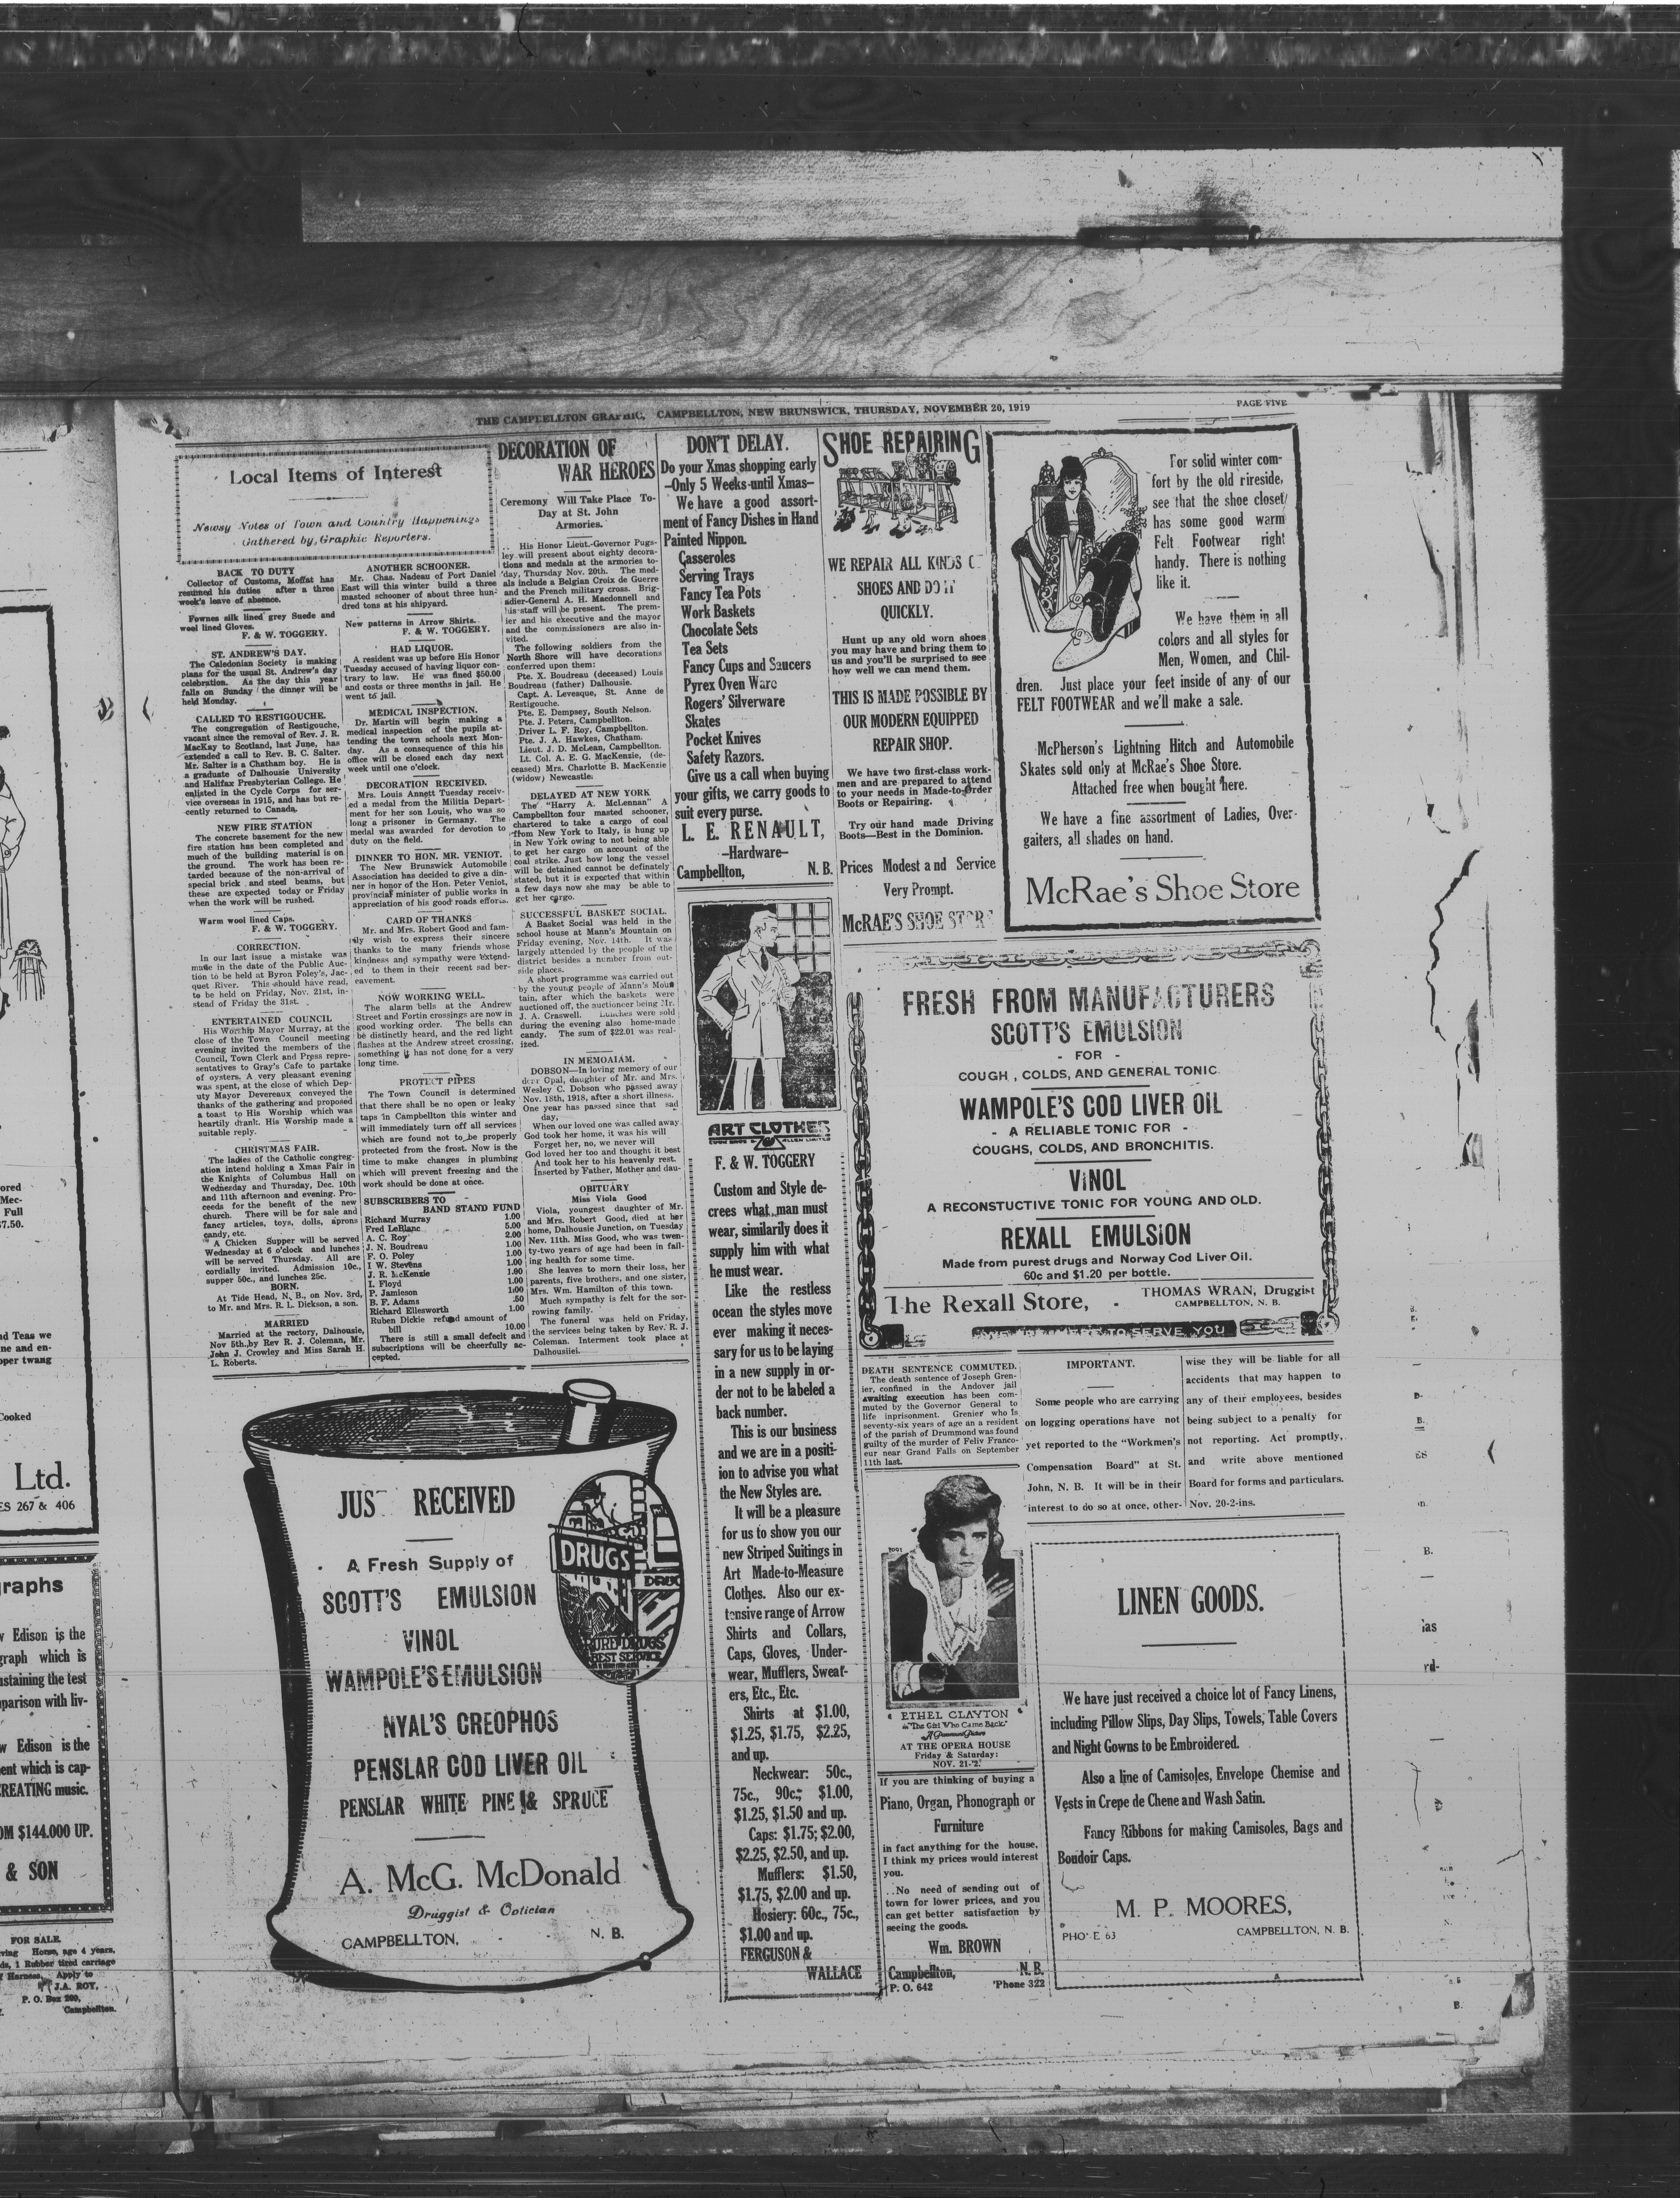 THE CAMPBELLTON GRAPHIC, CAMPBELLTON, NEW BRUNSWICK, THURSDAY, NOVEMBER 20, 1919
PAGE FIVE
Local Items of Interest
Newsy Notes of Town and Country Happenings
Gathered by Graphic Reporters.
BACK TO DUTY
Collector of Customs, Moffat has
resumed his duties after a three
week's leave of absence.
Fownes silk lined grey Suede and
wool lined Gloves.
F. & W. TOGGERY.
ST. ANDREW'S DAY.
The Caledonian Society is making
plans for the usual St. Andrew's day
celebration. As the day this year
falls on Sunday the dinner will be
held Monday.
CALLED TO RESTIGOUCHE.
The congregation of Restigouche,
vacant since the removal of Rev. J. R.
MacKay to Scotland, last June, has
extended a call to Rev. B. C. Salter.
Mr. Salter is a Chatham boy. He is
a graduate of Dalhousie University
and Halifax Presbyterian College. He
enlisted in the Cycle Corps for ser-
vice overseas in 1915, and has but re-
cently returned to Canada.
NEW FIRE STATION
The concrete basement for the new
fire station has been completed and
much of the building material is on
the ground. The work has been re-
tarded because of the non-arrival of
special brick and steel beams, but
these are expected today or Friday
when the work will be rushed.
Warm wool lined Caps.
F. & W. TOGGERY.
CORRECTION.
In our last issue a mistake was
made in the date of the Public Auc-
tion to be held at Byron Foley's, Jac-
quet River. This should have read,
to be held on Friday, Nov. 21st, in-
stead of Friday the 31st.
ENTERTAINED COUNCIL
His Worship Mayor Murray, at the
close of the Town Council meeting
evening invited the members of the
Council, Town Clerk and Press repre-
sentatives to Gray's Cafe to partake
of oysters. A very pleasant evening
was spent, at the close of which Dep-
uty Mayor Devereaux conveyed the
thanks of the gathering and proposed
a toast to His Worship which was
heartily drank. His Worship made a
suitable reply.
CHRISTMAS FAIR.
The ladies of the Catholic congreg-
ation intend holding a Xmas Fair in
the Knights of Columbus Hall on
Wednesday and Thursday, Dec. 10th
and 11th afternoon and evening. Pro-
ceeds for the benefit of the new
church. There will be for sale and
fancy articles, toys, dolls, aprons
candy, etc.
A Chicken Supper will be served
Wednesday at 6 o'clock and lunches
will be served Thursday. All are
cordially invited. Admission 10c.,
supper 50c., and lunches 25c.
BORN.
At Tide Head, N. B., on Nov. 3rd,
to Mr. and Mrs. R. L. Dickson, a son.
MARRIED
Married at the rectory, Dalhousie,
Nov 5th. by Rev R. J. Coleman, Mr.
John J. Crowley and Miss Sarah H.
L. Roberts.
ANOTHER SCHOONER.
Mr. Chas. Nadeau of Port Daniel
East will this winter build a three
masted schooner of about three hun-
dred tons at his shipyard.
New patterns in Arrow Shirts.
F. & W. TOGGERY.
HAD LIQUOR.
A resident was up before His Honor
Tuesday accused of having liquor con-
trary to law. He was fined $50.00
and costs or three months in jail. He
went to jail.
MEDICAL INSPECTION.
Dr. Martin will begin making a
medical inspection of the pupils at-
tending the town schools next Mon-
day. As a consequence of this his
office will be closed each day next
week until one o'clock.
DECORATION RECEIVED.
Mrs. Louis Annett Tuesday receiv-
ed a medal from the Militia Depart-
ment for her son Louis, who was so
long a prisoner in Germany. The
medal was awarded for devotion to
duty on the field.
DINNER TO HON. MR. VENIOT.
The New Brunswick Automobile
Association has decided to give a din-
ner in honor of the Hon. Peter Veniot,
provincial minister of public works in
appreciation of his good roads efforts.
CARD OF THANKS
Mr. and Mrs. Robert Good and fam-
ily wish to express their sincere
thanks to the many friends whose
kindness and sympathy were extend-
ed to them in their recent sad ber-
eavement.
NOW WORKING WELL.
The alarm bells at the Andrew
Street and Fortin crossings are now in
good working order. The bells can
be distinctly heard, and the red light
flashes at the Andrew street crossing,
something it has not done for a very
long time.
PROTECT PIPES
The Town Council is determined
that there shall be no open or leaky
taps in Campbellton this winter and
will immediately turn off all services
which are found not to be properly
protected from the frost. Now is the
time to make changes in plumbing
which will prevent freezing and the
work should be done at once.
SUBSCRIBERS TO
BAND STAND FUND
Richard Murray 1.00
Fred LeBlanc 5.00
A. C. Roy 2.00
J. N. Boudreau 1.00
F. O. Foley 1.00
I W. Stevens 1.00
J. R. McKenzie 1.00
I. Floyd 1.00
P. Jamieson 1:00
B. F. Adams .50
Richard Ellesworth 1.00
Ruben Dickie refund amount of
bill 10.00
There is still a small defecit and
subscriptions will be cheerfully ac-
cepted.
DECORATION OF
WAR HEROES
Ceremony Will Take Place To-
Day at St. John
Armories.
His Honor Lieut.-Governor Pugs-
ley will present about eighty decora-
tions and medals at the armories to-
day, Thursday Nov. 20th. The med-
als include a Belgian Croix de Guerre
and the French military cross. Brig-
adier-General A. H. Macdonnell and
his staff will be present. The prem-
ier and his executive and the mayor
and the commissioners are also in-
vited.
The following soldiers from the
North Shore will have decorations
conferred upon them:
Pte. X. Boudreau (deceased) Louis
Boudreau (father) Dalhousie.
Capt. A. Levesque, St. Anne de
Restigouche.
Pte. E. Dempsey, South Nelson.
Pte. J. Peters, Campbellton.
Driver L. F. Roy, Campbellton.
Pte. J. A. Hawkes, Chatham.
Lieut. J. D. McLean, Campbellton.
Lt. Col. A. E. G. MacKenzie, (de-
ceased) Mrs. Charlotte B. MacKenzie
(widow) Newcastle.
DELAYED AT NEW YORK
The "Harry A. McLennan" A
Campbellton four masted schooner,
chartered to take a cargo of coal
from New York to Italy, is hung up
in New York owing to not being able
to get her cargo on account of the
coal strike. Just how long the vessel
will be detained cannot be definately
stated, but it is expected that within
a few days now she may be able to
get her cargo.
SUCCESSFUL BASKET SOCIAL.
A Basket Social was held in the
school house at Mann's Mountain on
Friday evening, Nov. 14th. It was
largely attended by the people of the
district besides a number from out-
side places.
A short programme was carried out
by the young people of Mann's Moun
tain, after which the baskets were
auctioned off, the auctioneer being Mr.
J. A. Craswell. Lunches were sold
during the evening also home-made
candy. The sum of $22.01 was real-
ized.
IN MEMOAIAM.
DOBSON—In loving memory of our
dear Opal, daughter of Mr. and Mrs.
Wesley C. Dobson who passed away
Nov. 18th, 1918, after a short illness.
One year has passed since that sad
day,
When our loved one was called away
God took her home, it was his will
Forget her, no, we never will
God loved her too and thought it best
And took her to his heavenly rest.
Inserted by Father, Mother and dau-
OBITUARY
Miss Viola Good
Viola, youngest daughter of Mr.
and Mrs. Robert Good, died at her
home, Dalhousie Junction, on Tuesday
Nov. 11th. Miss Good, who was twen-
ty-two years of age had been in fail-
ing health for some time.
She leaves to morn their loss, her
parents, five brothers, and one sister,
Mrs. Wm. Hamilton of this town.
Much sympathy is felt for the sor-
rowing family.
The funeral was held on Friday,
the services being taken by Rev. R. J.
Coleman. Interment took place at
Dalhousiiei.
DON'T DELAY.
Do your Xmas shopping early
—Only 5 Weeks until Xmas—
We have a good assort-
ment of Fancy Dishes in Hand
Painted Nippon.
Casseroles
Serving Trays
Fancy Tea Pots
Work Baskets
Chocolate Sets
Tea Sets
Fancy Cups and Saucers
Pyrex Oven Ware
Rogers' Silverware
Skates
Pocket Knives
Safety Razors.
Give us a call when buying
your gifts, we carry goods to
suit every purse.
L. E. RENAULT,
—Hardware—
Campbellton, N. B.
SHOE REPAIRING
WE REPAIR ALL KINDS O
SHOES AND DO IT
QUICKLY.
Hunt up any old worn shoes
you may have and bring them to
us and you'll be surprised to see
how well we can mend them.
THIS IS MADE POSSIBLE BY
OUR MODERN EQUIPPED
REPAIR SHOP.
We have two first-class work-
men and are prepared to attend
to your needs in Made-to-Order
Boots or Repairing.
Try our hand made Driving
Boots—Best in the Dominion.
Prices Modest and Service
Very Prompt.
McRAE'S SHOE STORE
For solid winter com-
fort by the old rireside,
see that the shoe closet
has some good warm
Felt Footwear right
handy. There is nothing
like it.
We have them in all
colors and all styles for
Men, Women, and Chil-
dren. Just place your feet inside of any of our
FELT FOOTWEAR and we'll make a sale.
McPherson's Lightning Hitch and Automobile
Skates sold only at McRae's Shoe Store.
Attached free when bought here.
We have a fine assortment of Ladies, Over-
gaiters, all shades on hand.
McRae's Shoe Store
ART CLOTHES
F. & W. TOGGERY
Custom and Style de-
crees what man must
wear, similarily does it
supply him with what
he must wear.
Like the restless
ocean the styles move
ever making it neces-
sary for us to be laying
in a new supply in or-
der not to be labeled a
back number.
This is our business
and we are in a positi-
ion to advise you what
the New Styles are.
It will be a pleasure
for us to show you our
new Striped Suitings in
Art Made-to-Measure
Clothes. Also our ex-
tensive range of Arrow
Shirts and Collars,
Caps, Gloves, Under-
wear, Mufflers, Sweat-
ers, Etc., Etc.
Shirts at $1.00,
$1.25, $1.75, $2.25,
and up.
Neckwear: 50c.,
75c., 90c.; $1.00,
$1.25, $1.50 and up.
Caps: $1.75; $2.00,
$2.25, $2.50, and up.
Mufflers: $1.50,
$1.75, $2.00 and up.
Hosiery: 60c., 75c.,
$1.00 and up.
FERGUSON &
WALLACE
FRESH FROM MANUFACTURERS
SCOTT'S EMULSION
- FOR -
COUGH , COLDS, AND GENERAL TONIC
WAMPOLE'S COD LIVER OIL
- A RELIABLE TONIC FOR -
COUGHS, COLDS, AND BRONCHITIS.
VINOL
A RECONSTUCTIVE TONIC FOR YOUNG AND OLD.
REXALL EMULSION
Made from purest drugs and Norway Cod Liver Oil.
60c and $1.20 per bottle.
The Rexall Store, -
THOMAS WRAN, Druggist
CAMPBELLTON, N. B.
WE ARE HERE TO SERVE YOU
DEATH SENTENCE COMMUTED.
The death sentence of Joseph Gren-
ier, confined in the Andover jail
awaiting execution has been com-
muted by the Governor General to
life inprisonment. Grenier who is
seventy-six years of age an a resident
of the parish of Drummond was found
guilty of the murder of Feliv Franco-
eur near Grand Falls on September
11th last.
IMPORTANT.
Some people who are carrying
on logging operations have not
yet reported to the "Workmen's
Compensation Board" at St.
John, N. B. It will be in their
interest to do so at once, other-
wise they will be liable for all
accidents that may happen to
any of their employees, besides
being subject to a penalty for
not reporting. Act promptly,
and write above mentioned
Board for forms and particulars.
Nov. 20-2-ins.
ETHEL CLAYTON
in "The Girl Who Came Back"
A Paramount Picture
AT THE OPERA HOUSE
Friday & Saturday:
NOV. 21-2.
If you are thinking of buying a
Piano, Organ, Phonograph or
Furniture
in fact anything for the house,
I think my prices would interest
you.
..No need of sending out of
town for lower prices, and you
can get better satisfaction by
seeing the goods.
Wm. BROWN
Campbellton, N. B.
P. O. 642 'Phone 322
LINEN GOODS.
We have just received a choice lot of Fancy Linens,
including Pillow Slips, Day Slips, Towels, Table Covers
and Night Gowns to be Embroidered.
Also a line of Camisoles, Envelope Chemise and
Vests in Crepe de Chene and Wash Satin.
Fancy Ribbons for making Camisoles, Bags and
Boudoir Caps.
M. P. MOORES,
PHO E 63 CAMPBELLTON, N. B.
JUS RECEIVED
A Fresh Supply of
SCOTT'S EMULSION
VINOL
WAMPOLE'S EMULSION
NYAL'S CREOPHOS
PENSLAR COD LIVER OIL
PENSLAR WHITE PINE & SPRUCE
A. McG. McDonald
Druggist & Optician
CAMPBELLTON, - - N. B.
DRUGS
DRUG
PURE DRUGS
BEST SERVICE
ored
Mec-
Full
7.50.
nd Teas we
ne and en-
per twang
Cooked
Ltd.
ES 267 & 406
raphs
w Edison is the
graph which is
ustaining the test
parison with liv-
w Edison is the
ent which is cap-
CREATING music.
OM $144.000 UP.
& SON
FOR SALE
ving Horse, age 4 years,
ds, 1 Rubber tired carriage
Harness. Apply to
J.A. ROY,
P. O. Box 209,
Campbellton.